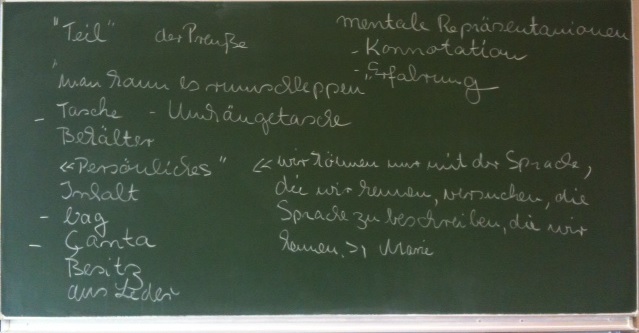 "Teil" der Preuße
"man kann es rumschleppen"
- Tasche - Umhängetasche
Behälter
«Persönliches"
Inhalt
- bag
- Çanta
Besitz
aus Leder
mentale Repräsentanionen
- Konnotation
- Erfahrung
« wir können nur mit der Sprache,
die wir kennen, versuchen, die
Sprache zu beschreiben, die wir
kennen. » Marie